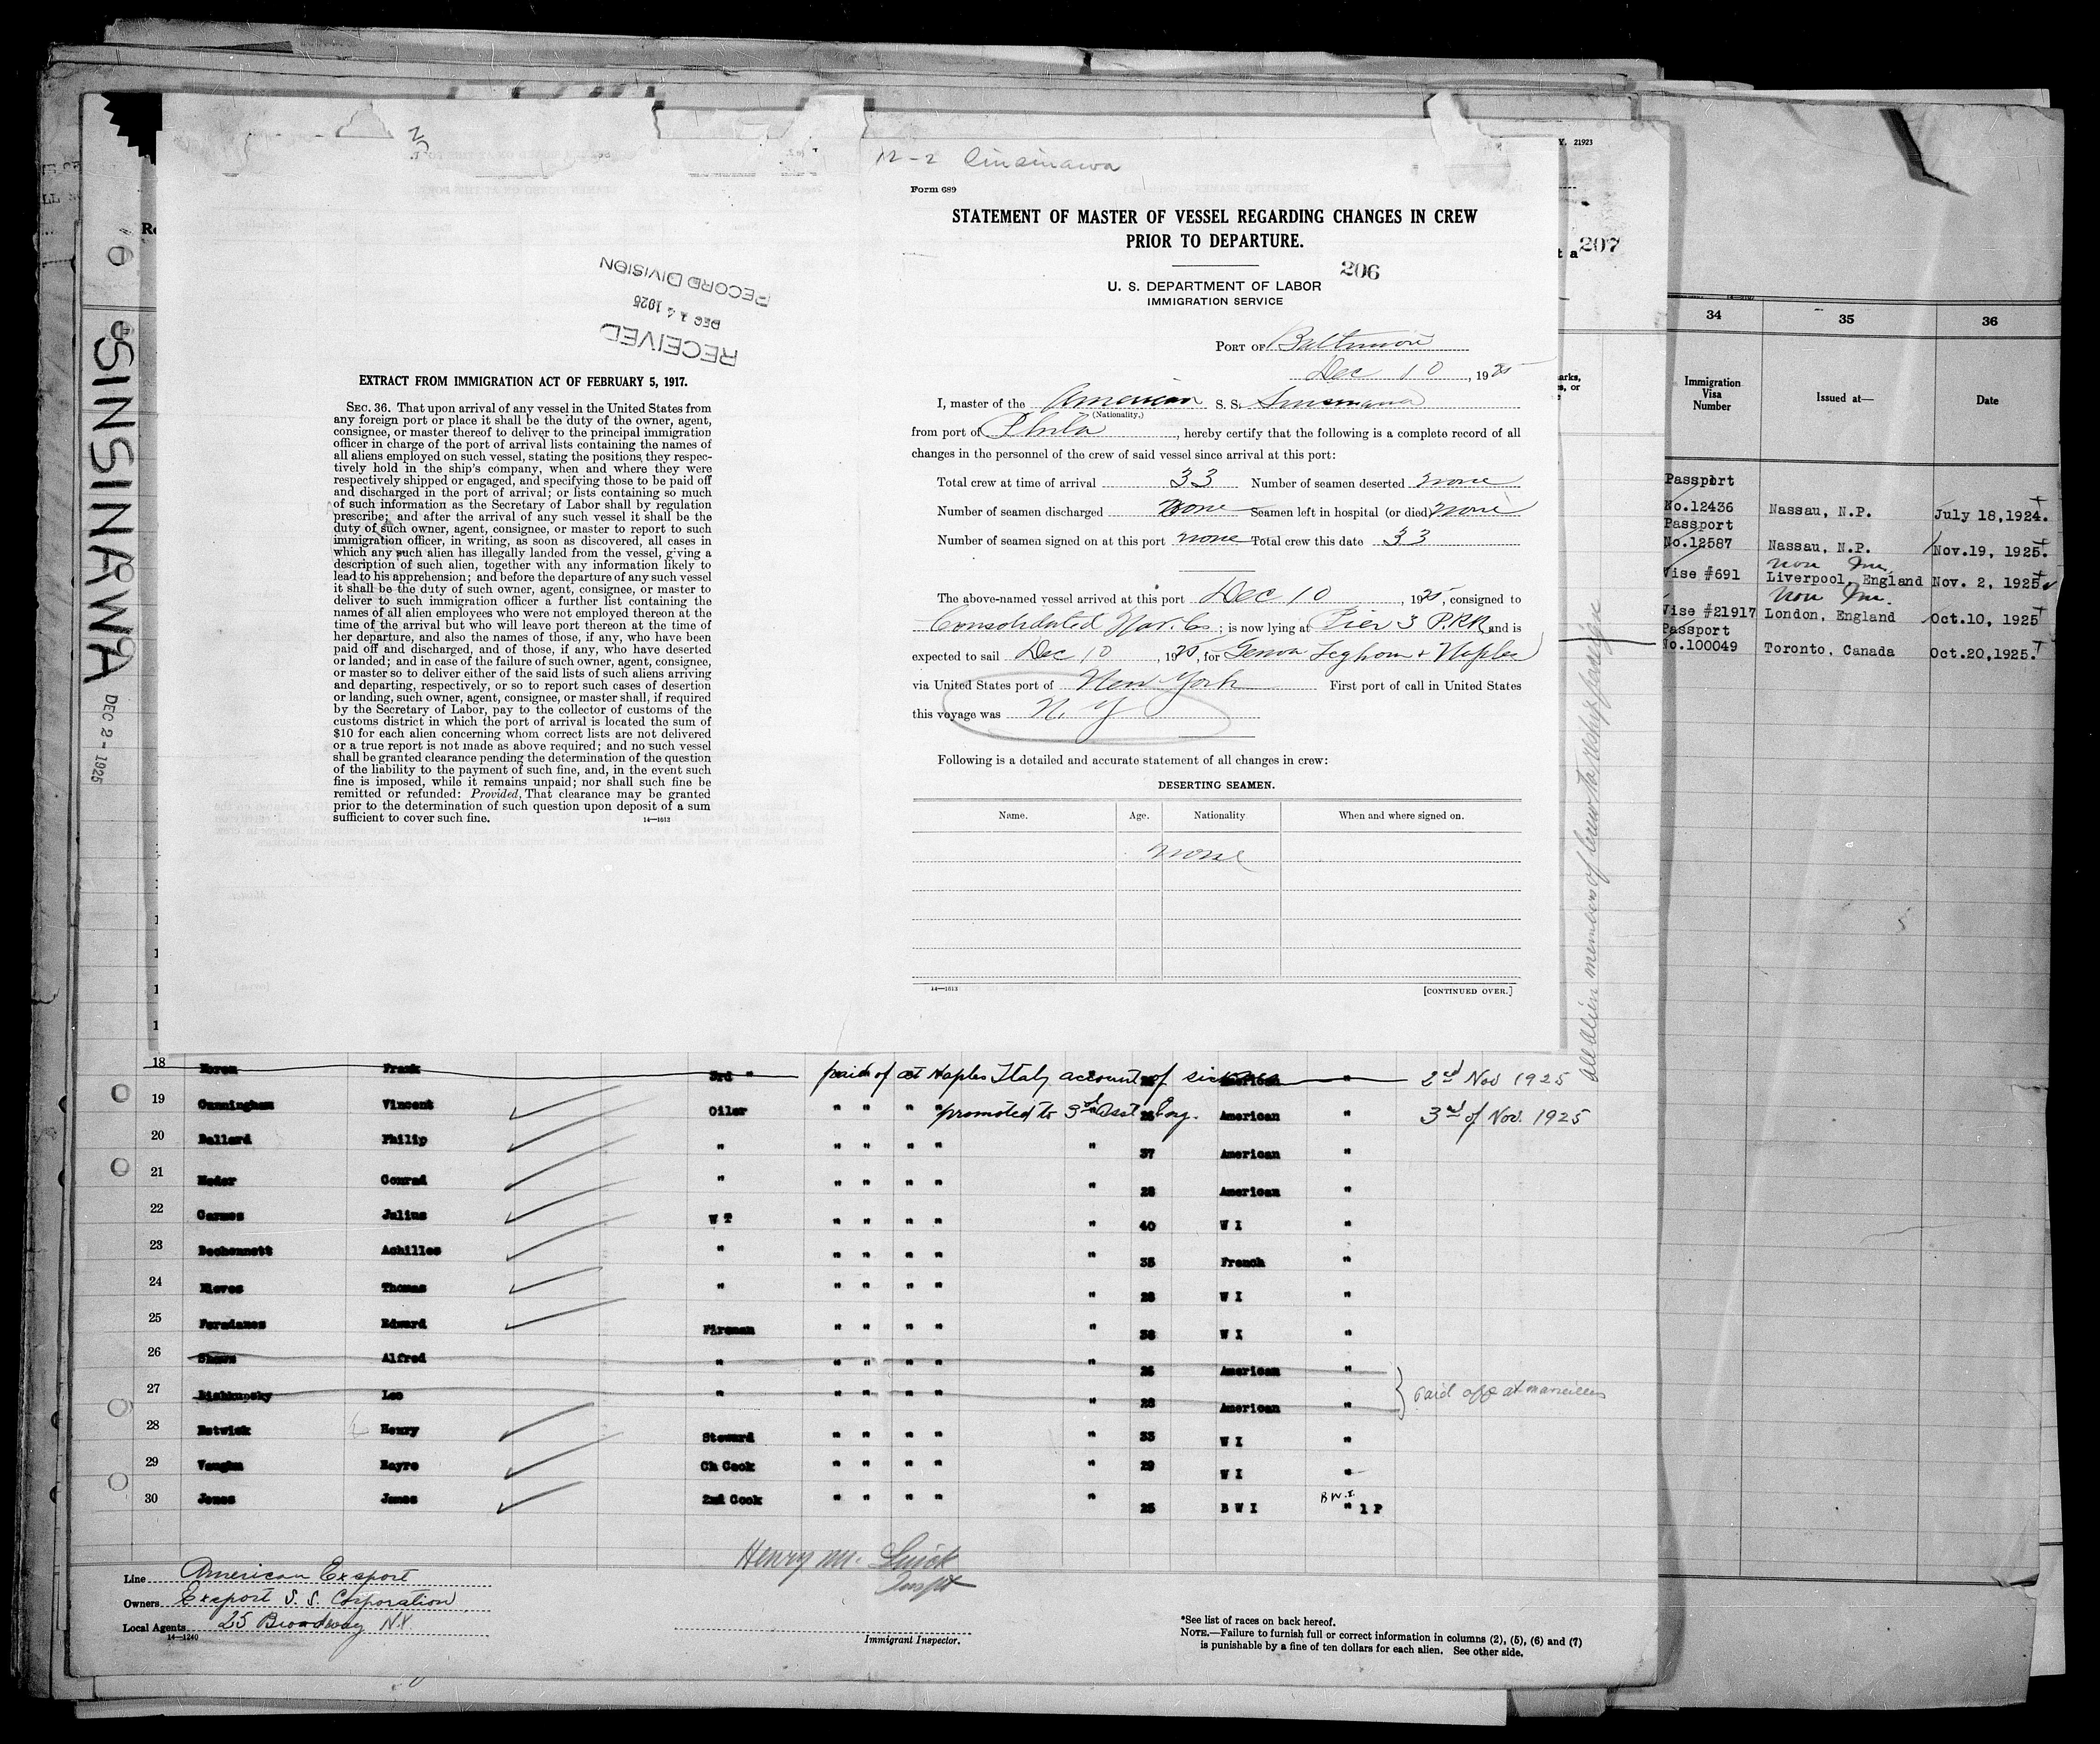 12-2 Sinsinawa
Form 689
STATEMENT OF MASTER OF VESSEL REGARDING CHANGES IN CREW
PRIOR TO DEPARTURE.
206
U. S. DEPARTMENT OF LABOR
IMMIGRATION SERVICE
PORT OF Baltimore
Dec 10, 1925
I, master of the American S. S. Sinsinawa
(Nationality.)
from port of Phila, hereby certify that the following is a complete record of all
changes in the personnel of the crew of said vessel since arrival at this port:
Total crew at time of arrival 33 Number of seamen deserted none
Number of seamen discharged none Seamen left in hospital (or died) none
Number of seamen signed on at this port none Total crew this date 33
The above-named vessel arrived at this port Dec 10, 1925, consigned to
Consolidated Nav. Co.; is now lying at Pier 3 P.RR and is
expected to sail Dec 10, 1920, for Genoa Leghorn + Naples
via United States port of New York First port of call in United States
this voyage was N. Y
Following is a detailed and accurate statement of all changes in crew:
DESERTING SEAMEN.
Name. Age. Nationality When and where signed on.
none
14—1613 [CONTINUED OVER.]
RECEIVED
DEC 14 1925
RECORD DIVISION
EXTRACT FROM IMMIGRATION ACT OF FEBRUARY 5, 1917.
SEC. 36. That upon arrival of any vessel in the United States from
any foreign port or place it shall be the duty of the owner, agent,
consignee, or master thereof to deliver to the principal immigration
officer in charge of the port of arrival lists containing the names of
all aliens employed on such vessel, stating the positions they respec-
tively hold in the ship's company, when and where they were
respectively shipped or engaged, and specifying those to be paid off
and discharged in the port of arrival; or lists containing so much
of such information as the Secretary of Labor shall by regulation
prescribe; and after the arrival of any such vessel it shall be the
duty of such owner, agent, consignee, or master to report to such
immigration officer, in writing, as soon as discovered, all cases in
which any such alien has illegally landed from the vessel, giving a
description of such alien, together with any information likely to
lead to his apprehension; and before the departure of any such vessel
it shall be the duty of such owner, agent, consignee, or master to
deliver to such immigration officer a further list containing the
names of all alien employees who were not employed thereon at the
time of the arrival but who will leave port thereon at the time of
her departure, and also the names of those, if any, who have been
paid off and discharged, and of those, if any, who have deserted
or landed; and in case of the failure of such owner, agent, consignee,
or master so to deliver either of the said lists of such aliens arriving
and departing, respectively, or so to report such cases of desertion
or landing, such owner, agent, consignee, or master shall, if required
by the Secretary of Labor, pay to the collector of customs of the
customs district in which the port of arrival is located the sum of
$10 for each alien concerning whom correct lists are not delivered
or a true report is not made as above required; and no such vessel
shall be granted clearance pending the determination of the question
of the liability to the payment of such fine, and, in the event such
fine is imposed, while it remains unpaid; nor shall such fine be
remitted or refunded: Provided, That clearance may be granted
prior to the determination of such question upon deposit of a sum
sufficient to cover such fine. 14—1613
SINSINAWA
DEC 2 - 1925
21923
207
34 35 36
Immigration Visa Number Issued at— Date
Passport
No.12436 Nassau, N.P. July 18,1924.
Passport
No.12587 Nassau, N.P. Nov.19, 1925.
Non Im.
Vise #691 Liverpool, England Nov. 2, 1925
Non Im.
Vise #21917 London, England Oct.10, 1925
Passport
No.100049 Toronto, Canada Oct.20,1925.
All alien members of crew to reship foreign
18 Moren Frank 3rd " paid of at Naples Italy account of sickness American " 2nd Nov 1925
19 Cunningham Vincent Oiler " " " " promoted to 3rd Asst Eng. American " 3rd of Nov. 1925
20 Ballard Philip " " " " " " 37 American "
21 Meder Conrad " " " " " " 28 American "
22 Carmes Julius W T " " " " " 40 W I "
23 Achilles " " " " " " 35 French "
24 Nieves Thomas " " " " " " 28 W I "
25 Edward Fireman " " " " " 38 W I "
26 Shawn Alfred " " " " " " American "
27 Leo " " " " " " 28 American " Paid off at Marseilles
28 Estwick Henry Steward " " " " " 33 W I "
29 Vaughn Ch Cook " " " " " 29 W I "
30 Jones James 2nd Cook " " " " " 25 B W I " 1 P
B W.I.
Henry M.
Inspt
Line American Export
Owners Export S. S. Corporation
Local Agents 25 Broadway N.Y.
14—1240
Immigrant Inspector.
*See list of races on back hereof.
NOTE.—Failure to furnish full or correct information in columns (2), (5), (6) and (7)
is punishable by a fine of ten dollars for each alien. See other side.